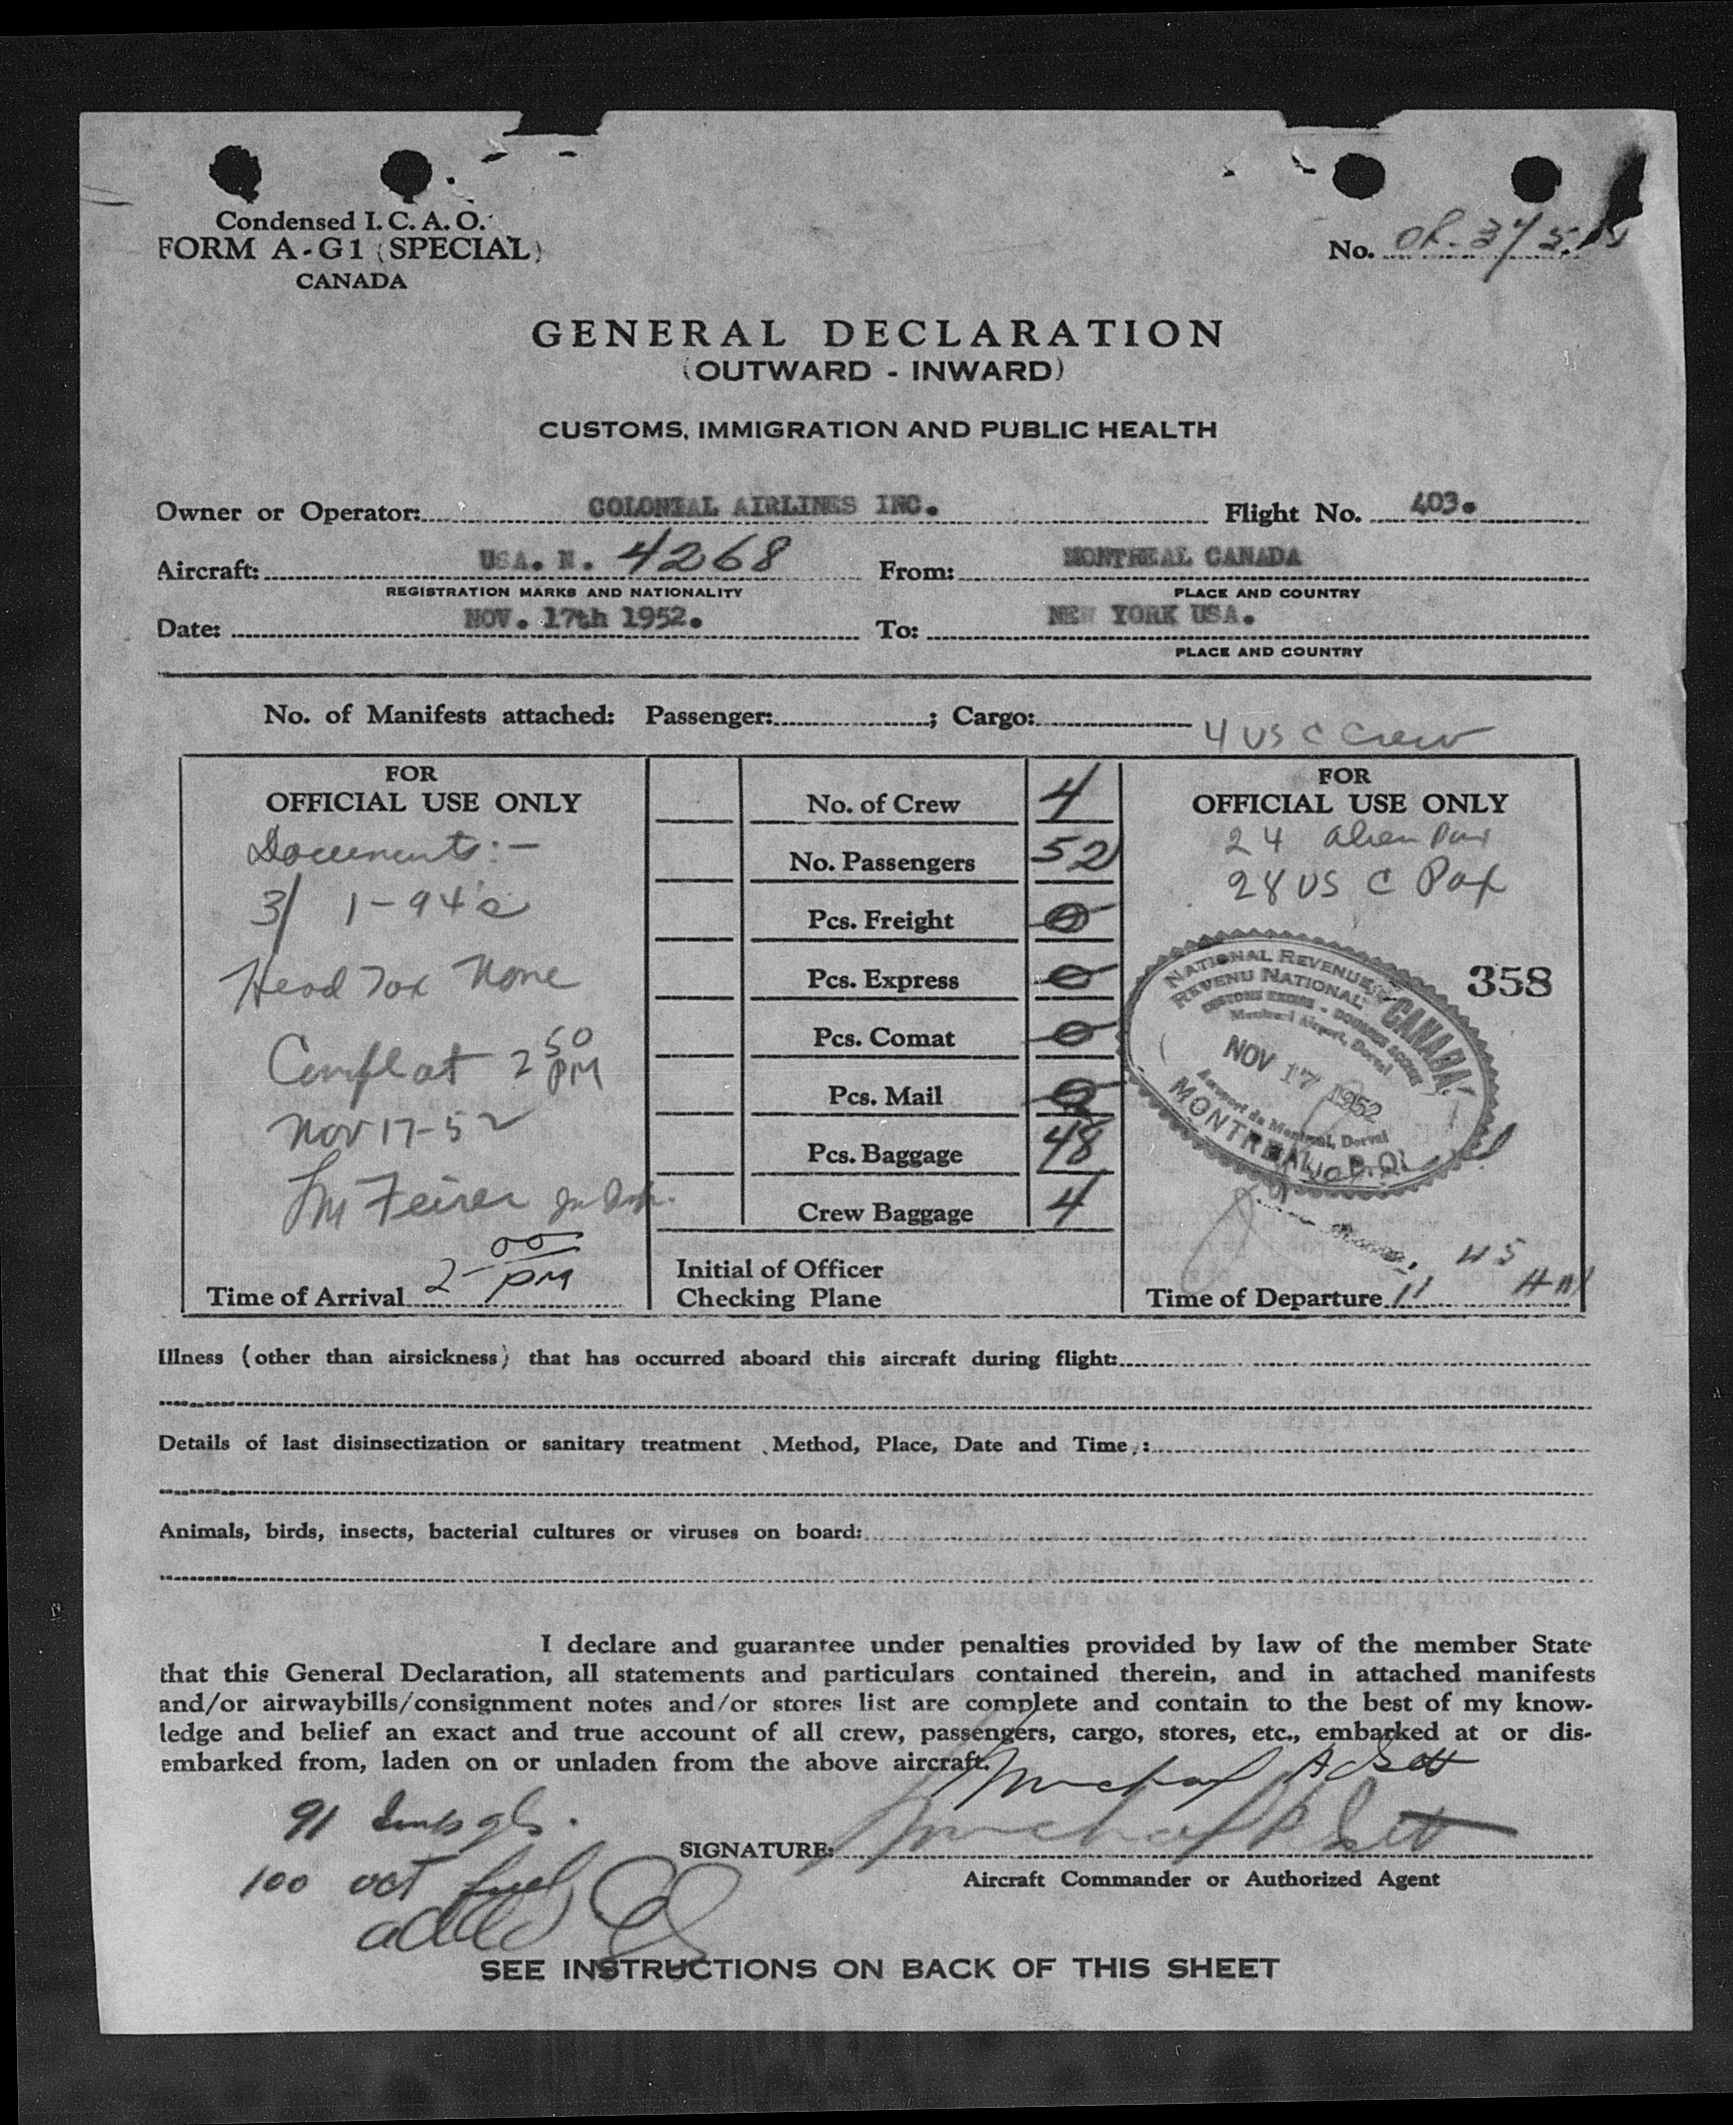 Condensed I. C. A. O.
FORM A-G1 (SPECIAL)
CANADA
No.
GENERAL DECLARATION
(OUTWARD - INWARD)
CUSTOMS, IMMIGRATION AND PUBLIC HEALTH
Owner or Operator: COLONIAL AIRLINES INC. Flight No. 403.
Aircraft: USA. N. 4268 From: MONTREAL CANADA
REGISTRATION MARKS AND NATIONALITY PLACE AND COUNTRY
Date: NOV. 17th 1952. To: NEW YORK USA.
PLACE AND COUNTRY
No. of Manifests attached: Passenger: ; Cargo:
4 US C Crew
FOR
OFFICIAL USE ONLY
Documents:-
3/ 1-94's
Head Tax None
Compl at 2 50 PM
Nov 17-52
Time of Arrival 2 00 PM
No. of Crew 4
No. Passengers 52
Pcs. Freight 0
Pcs. Express 0
Pcs. Comat 0
Pcs. Mail 0
Pcs. Baggage 48
Crew Baggage 4
Initial of Officer
Checking Plane
FOR
OFFICIAL USE ONLY
24 alien Pax
28 US C Pax
358
NATIONAL REVENUE
REVENU NATIONAL
CANADA
CUSTOMS EXCISE - DOUANES ACCISE
Montreal Airport, Dorval
NOV 17 1952
Aeroport de Montreal, Dorval
MONTREAL, P.Q.
Time of Departure 11 45
Illness (other than airsickness) that has occurred aboard this aircraft during flight:
Details of last disinsectization or sanitary treatment (Method, Place, Date and Time):
Animals, birds, insects, bacterial cultures or viruses on board:
I declare and guarantee under penalties provided by law of the member State
that this General Declaration, all statements and particulars contained therein, and in attached manifests
and/or airwaybills/consignment notes and/or stores list are complete and contain to the best of my know-
ledge and belief an exact and true account of all crew, passengers, cargo, stores, etc., embarked at or dis-
embarked from, laden on or unladen from the above aircraft.
91
100 oct fuel
added
SIGNATURE:
Aircraft Commander or Authorized Agent
SEE INSTRUCTIONS ON BACK OF THIS SHEET